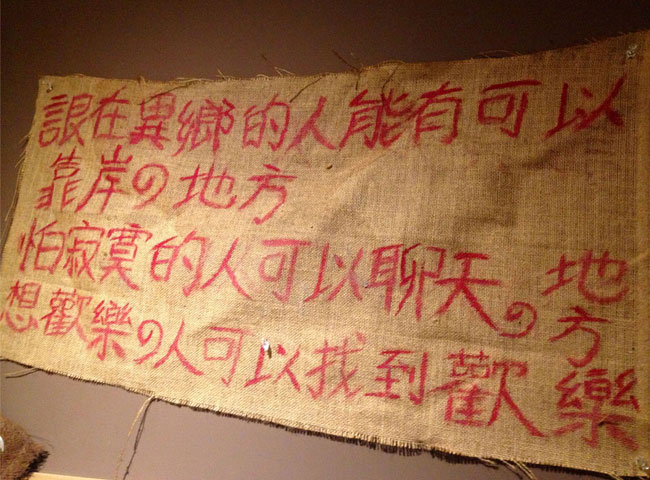 詪在異鄉的人能有可以
靠岸の地方
怕寂寞的人可以聊天の地方
想歡樂の人可以找到歡樂